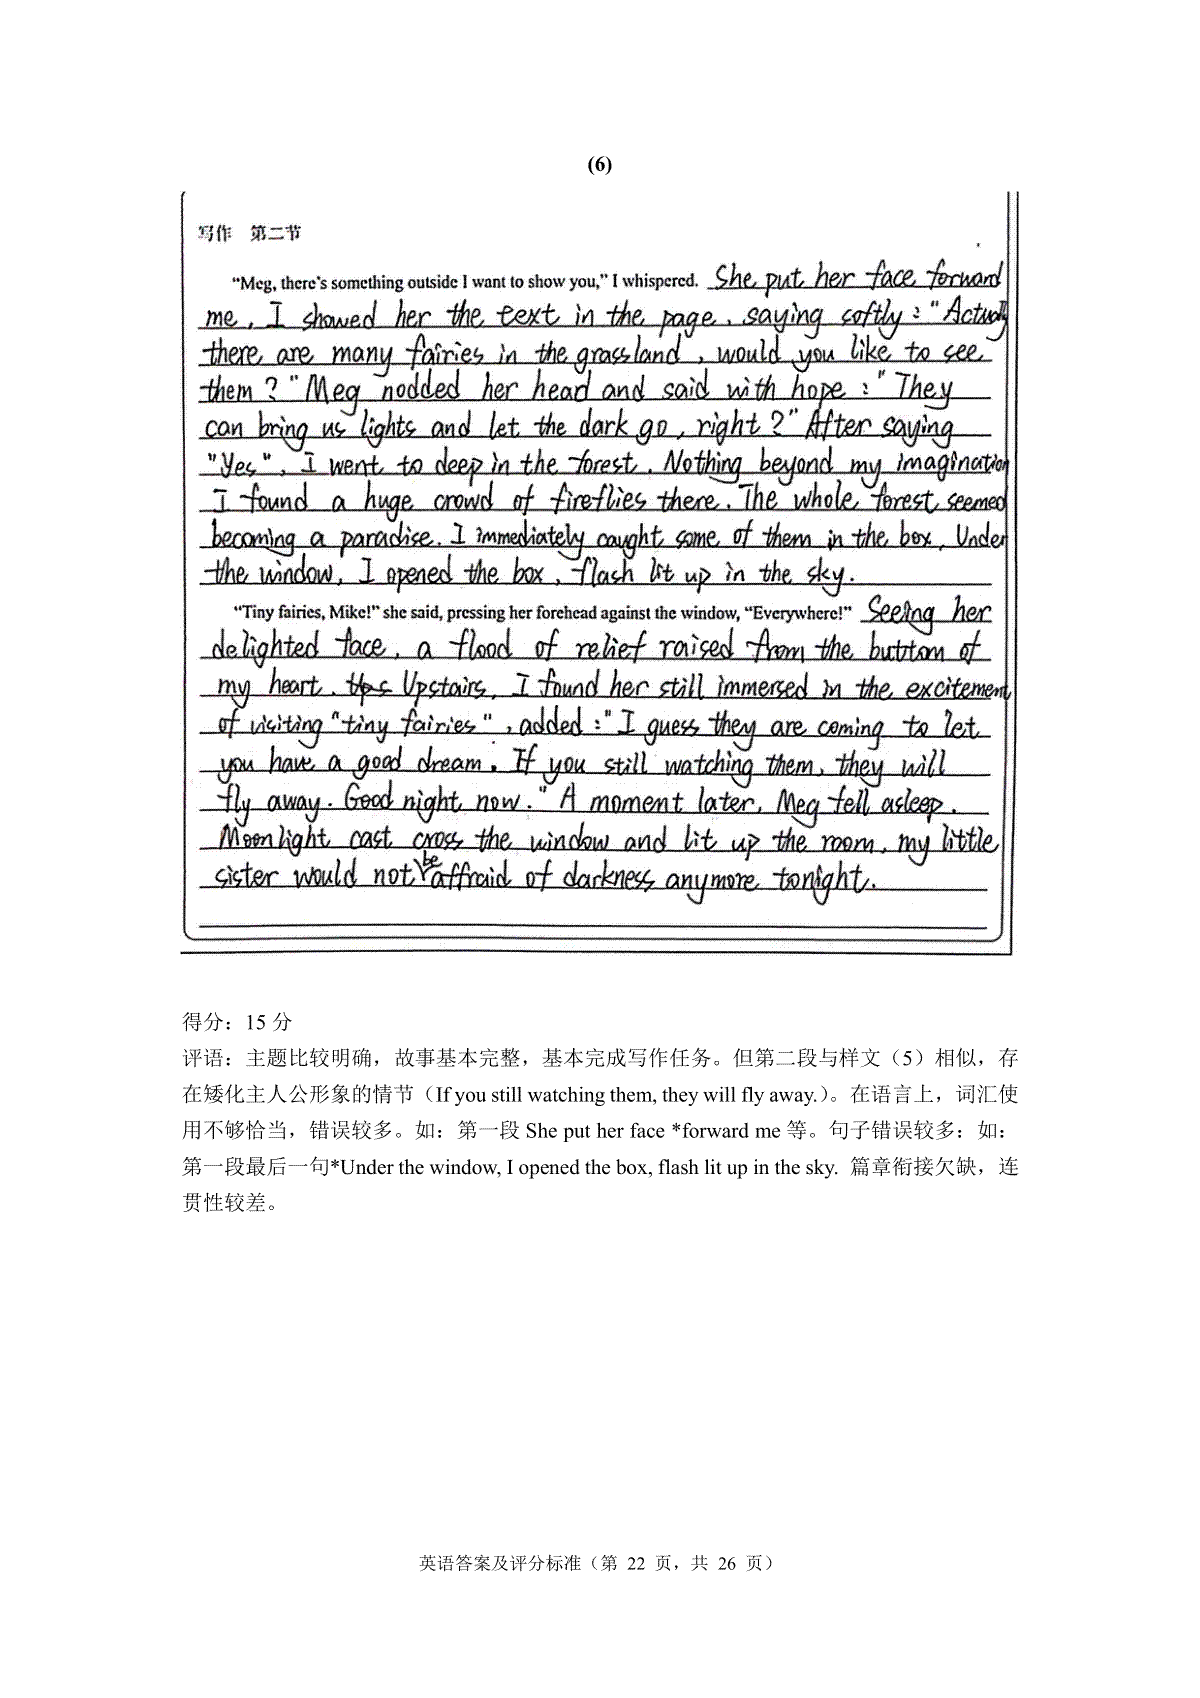 (6)
写作 第二节
“Meg, there's something outside I want to show you,” I whispered. She put her face forward
me, I showed her the text in the page, saying softly: "Actually
there are many fairies in the grassland, would you like to see
them?" Meg nodded her head and said with hope: "They
can bring us lights and let the dark go, right?" After saying
"Yes", I went to deep in the forest. Nothing beyond my imagination
I found a huge crowd of fireflies there. The whole forest seemed
becoming a paradise. I immediately caught some of them in the box. Under
the window, I opened the box, flash lit up in the sky.
“Tiny fairies, Mike!” she said, pressing her forehead against the window, “Everywhere!” Seeing her
delighted face, a flood of relief raised from the buttom of
my heart. Upstairs, I found her still immersed in the excitement
of visiting "tiny fairies", added: "I guess they are coming to let
you have a good dream. If you still watching them, they will
fly away. Good night now." A moment later, Meg fell asleep.
Moonlight cast cross the window and lit up the room, my little
sister would not be affraid of darkness anymore tonight.
得分：15 分
评语：主题比较明确，故事基本完整，基本完成写作任务。但第二段与样文（5）相似，存
在矮化主人公形象的情节（If you still watching them, they will fly away.）。在语言上，词汇使
用不够恰当，错误较多。如：第一段 She put her face *forward me 等。句子错误较多：如：
第一段最后一句*Under the window, I opened the box, flash lit up in the sky. 篇章衔接欠缺，连
贯性较差。
英语答案及评分标准（第 22 页，共 26 页）